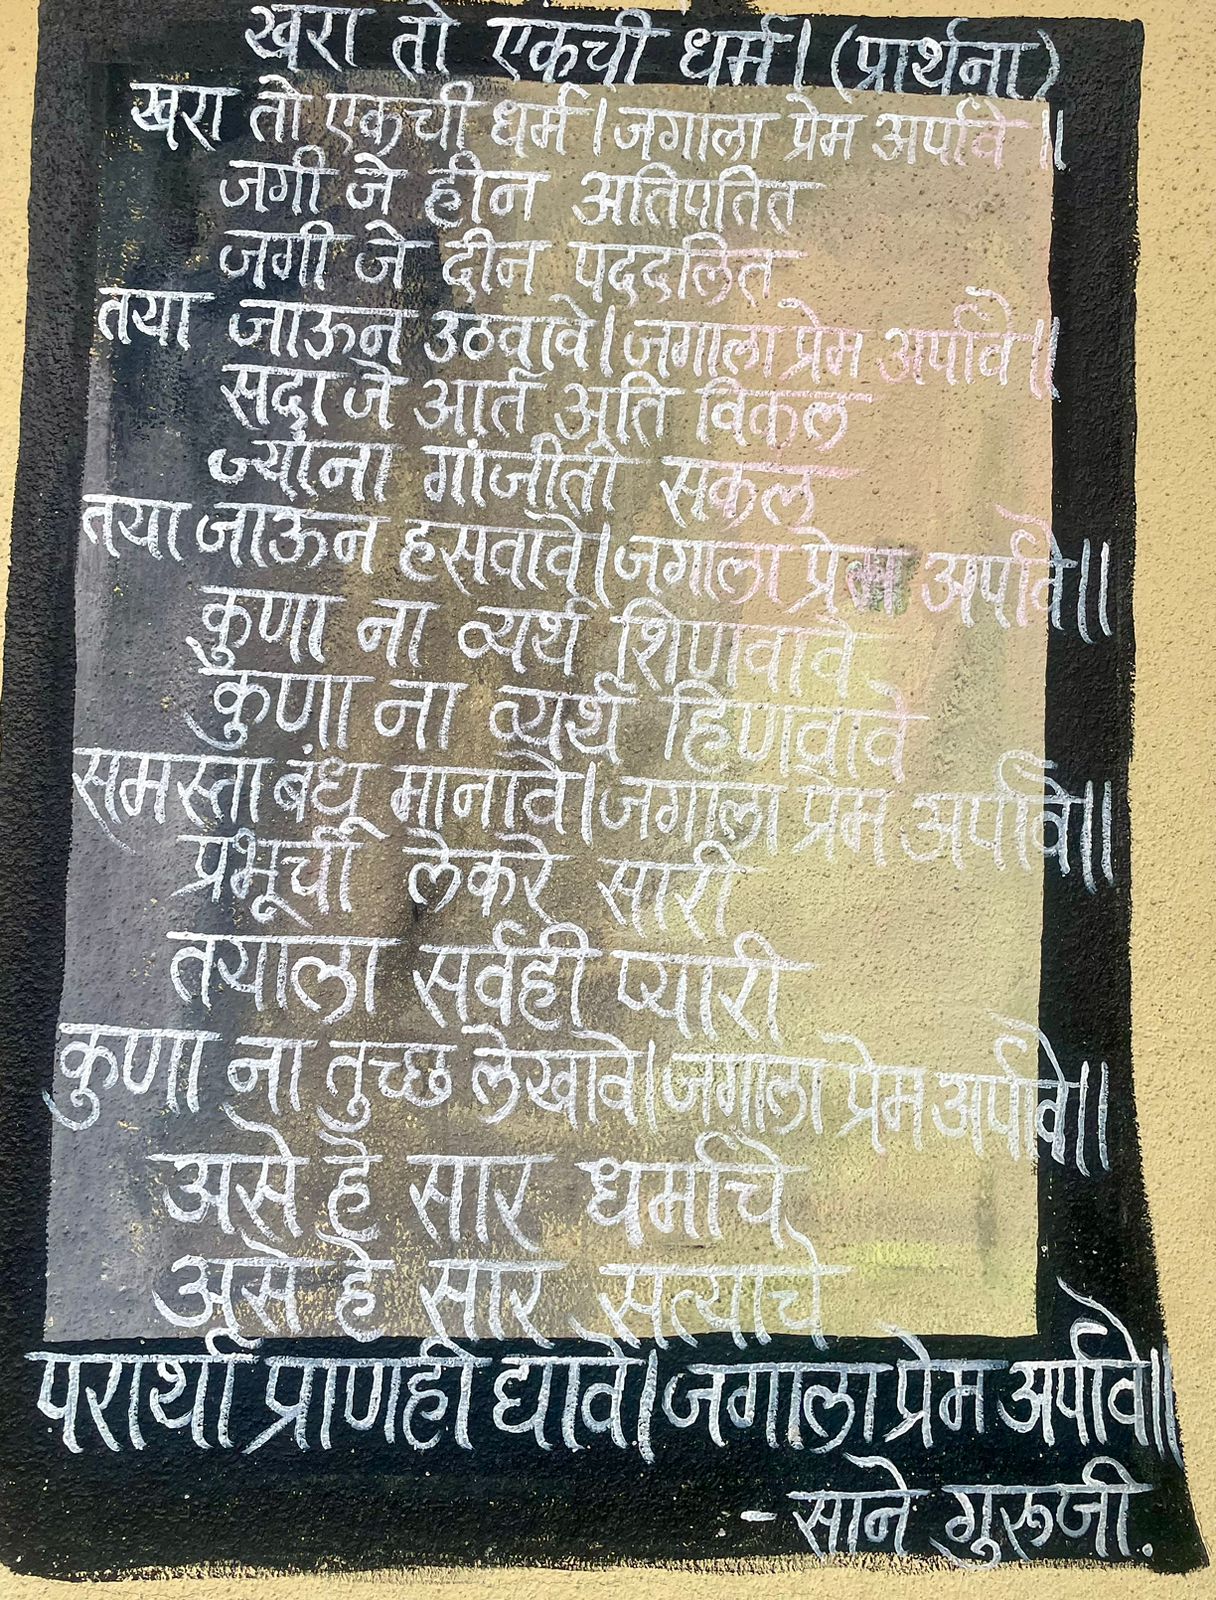 खरा तो एकची धर्म। (प्रार्थना)
खरा तो एकची धर्म। जगाला प्रेम अर्पावे॥
जगी जे हीन अतिपतित
जगी जे दीन पददलित
तया जाऊन उठवावे। जगाला प्रेम अर्पावे॥
सदा जे आर्त अति विकल
ज्यांना गांजीती सकल
तया जाऊन हसवावे। जगाला प्रेम अर्पावे॥
कुणा ना व्यर्थ शिणवावे
कुणा ना व्यर्थ हिणवावे
समस्ता बंधू मानावे। जगाला प्रेम अर्पावे॥
प्रभूची लेकरे सारी
तयाला सर्वही प्यारी
कुणा ना तुच्छ लेखावे। जगाला प्रेम अर्पावे॥
असे हे सार धर्माचे
असे हे सार सत्याचे
परार्था प्राणही द्यावे। जगाला प्रेम अर्पावे॥
- साने गुरूजी.